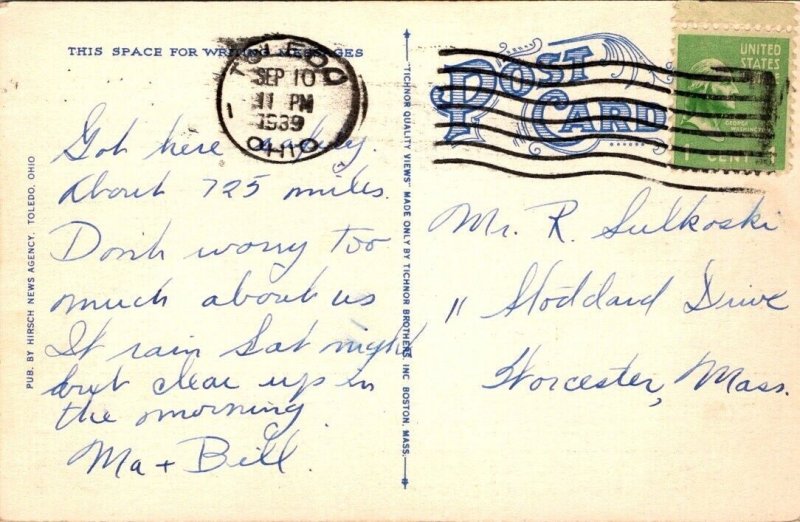 THIS SPACE FOR WRITING MESSAGES
TOLEDO
SEP 10
11 PM
1939
OHIO
1
POST
CARD
UNITED
STATES
GEORGE
WASHINGTON
1 CENT 1
Got here okey.
About 725 miles.
Don't worry too
much about us
It rain Sat night
but clear up in
the morning.
Ma + Bill.
Mr. R. Sulkoski
11 Stoddard Drive
Worcester, Mass.
PUB. BY HIRSCH NEWS AGENCY, TOLEDO, OHIO
"TICHNOR QUALITY VIEWS" MADE ONLY BY TICHNOR BROTHERS INC. BOSTON, MASS.